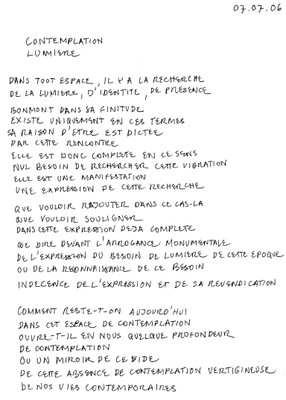 07.07.06
CONTEMPLATION
LUMIERE
DANS TOUT ESPACE, IL Y A LA RECHERCHE
DE LA LUMIERE, D'IDENTITE, DE PRESENCE
BONMONT DANS SA FINITUDE
EXISTE UNIQUEMENT EN CES TERMES
SA RAISON D'ETRE EST DICTEE
PAR CETTE RENCONTRE
ELLE EST DONC COMPLETE EN CE SENS
NUL BESOIN DE RECHERCHER CETTE VIBRATION
ELLE EST UNE MANIFESTATION
UNE EXPRESSION DE CETTE RECHERCHE
QUE VOULOIR RAJOUTER DANS CE CAS-LA
QUE VOULOIR SOULIGNER
DANS CETTE EXPRESSION DEJA COMPLETE
QUE DIRE DEVANT L'ARROGANCE MONUMENTALE
DE L'EXPRESSION DU BESOIN DE LUMIERE DE CETTE EPOQUE
OU DE LA RECONNAISSANCE DE CE BESOIN
INDECENCE DE L'EXPRESSION ET DE SA REVENDICATION
COMMENT RESTE-T-ON AUJOURD'HUI
DANS CET ESPACE DE CONTEMPLATION
OUVRE-T-IL EN NOUS QUELQUE PROFONDEUR
DE CONTEMPLATION
OU UN MIROIR DE CE VIDE
DE CETTE ABSENCE DE CONTEMPLATION VERTIGINEUSE
DE NOS VIES CONTEMPORAIRES